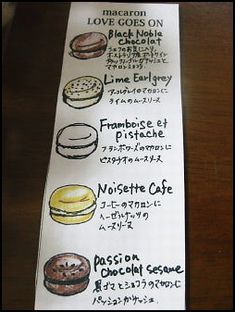 macaron
LOVE GOES ON
Black Noble
chocolat
マカロンショコラ
Lime Earlgrey
アールグレイのマカロンに
ライムのムースリーヌ
Framboise et
pistache
フランボワーズのマカロンに
ピスタチオのムースリーヌ
Noisette Cafe
コーヒーのマカロンに
ヘーゼルナッツの
ムースリーヌ
passion
chocolat sesame
黒ゴマとショコラのマカロンに
パッションガナッシュ